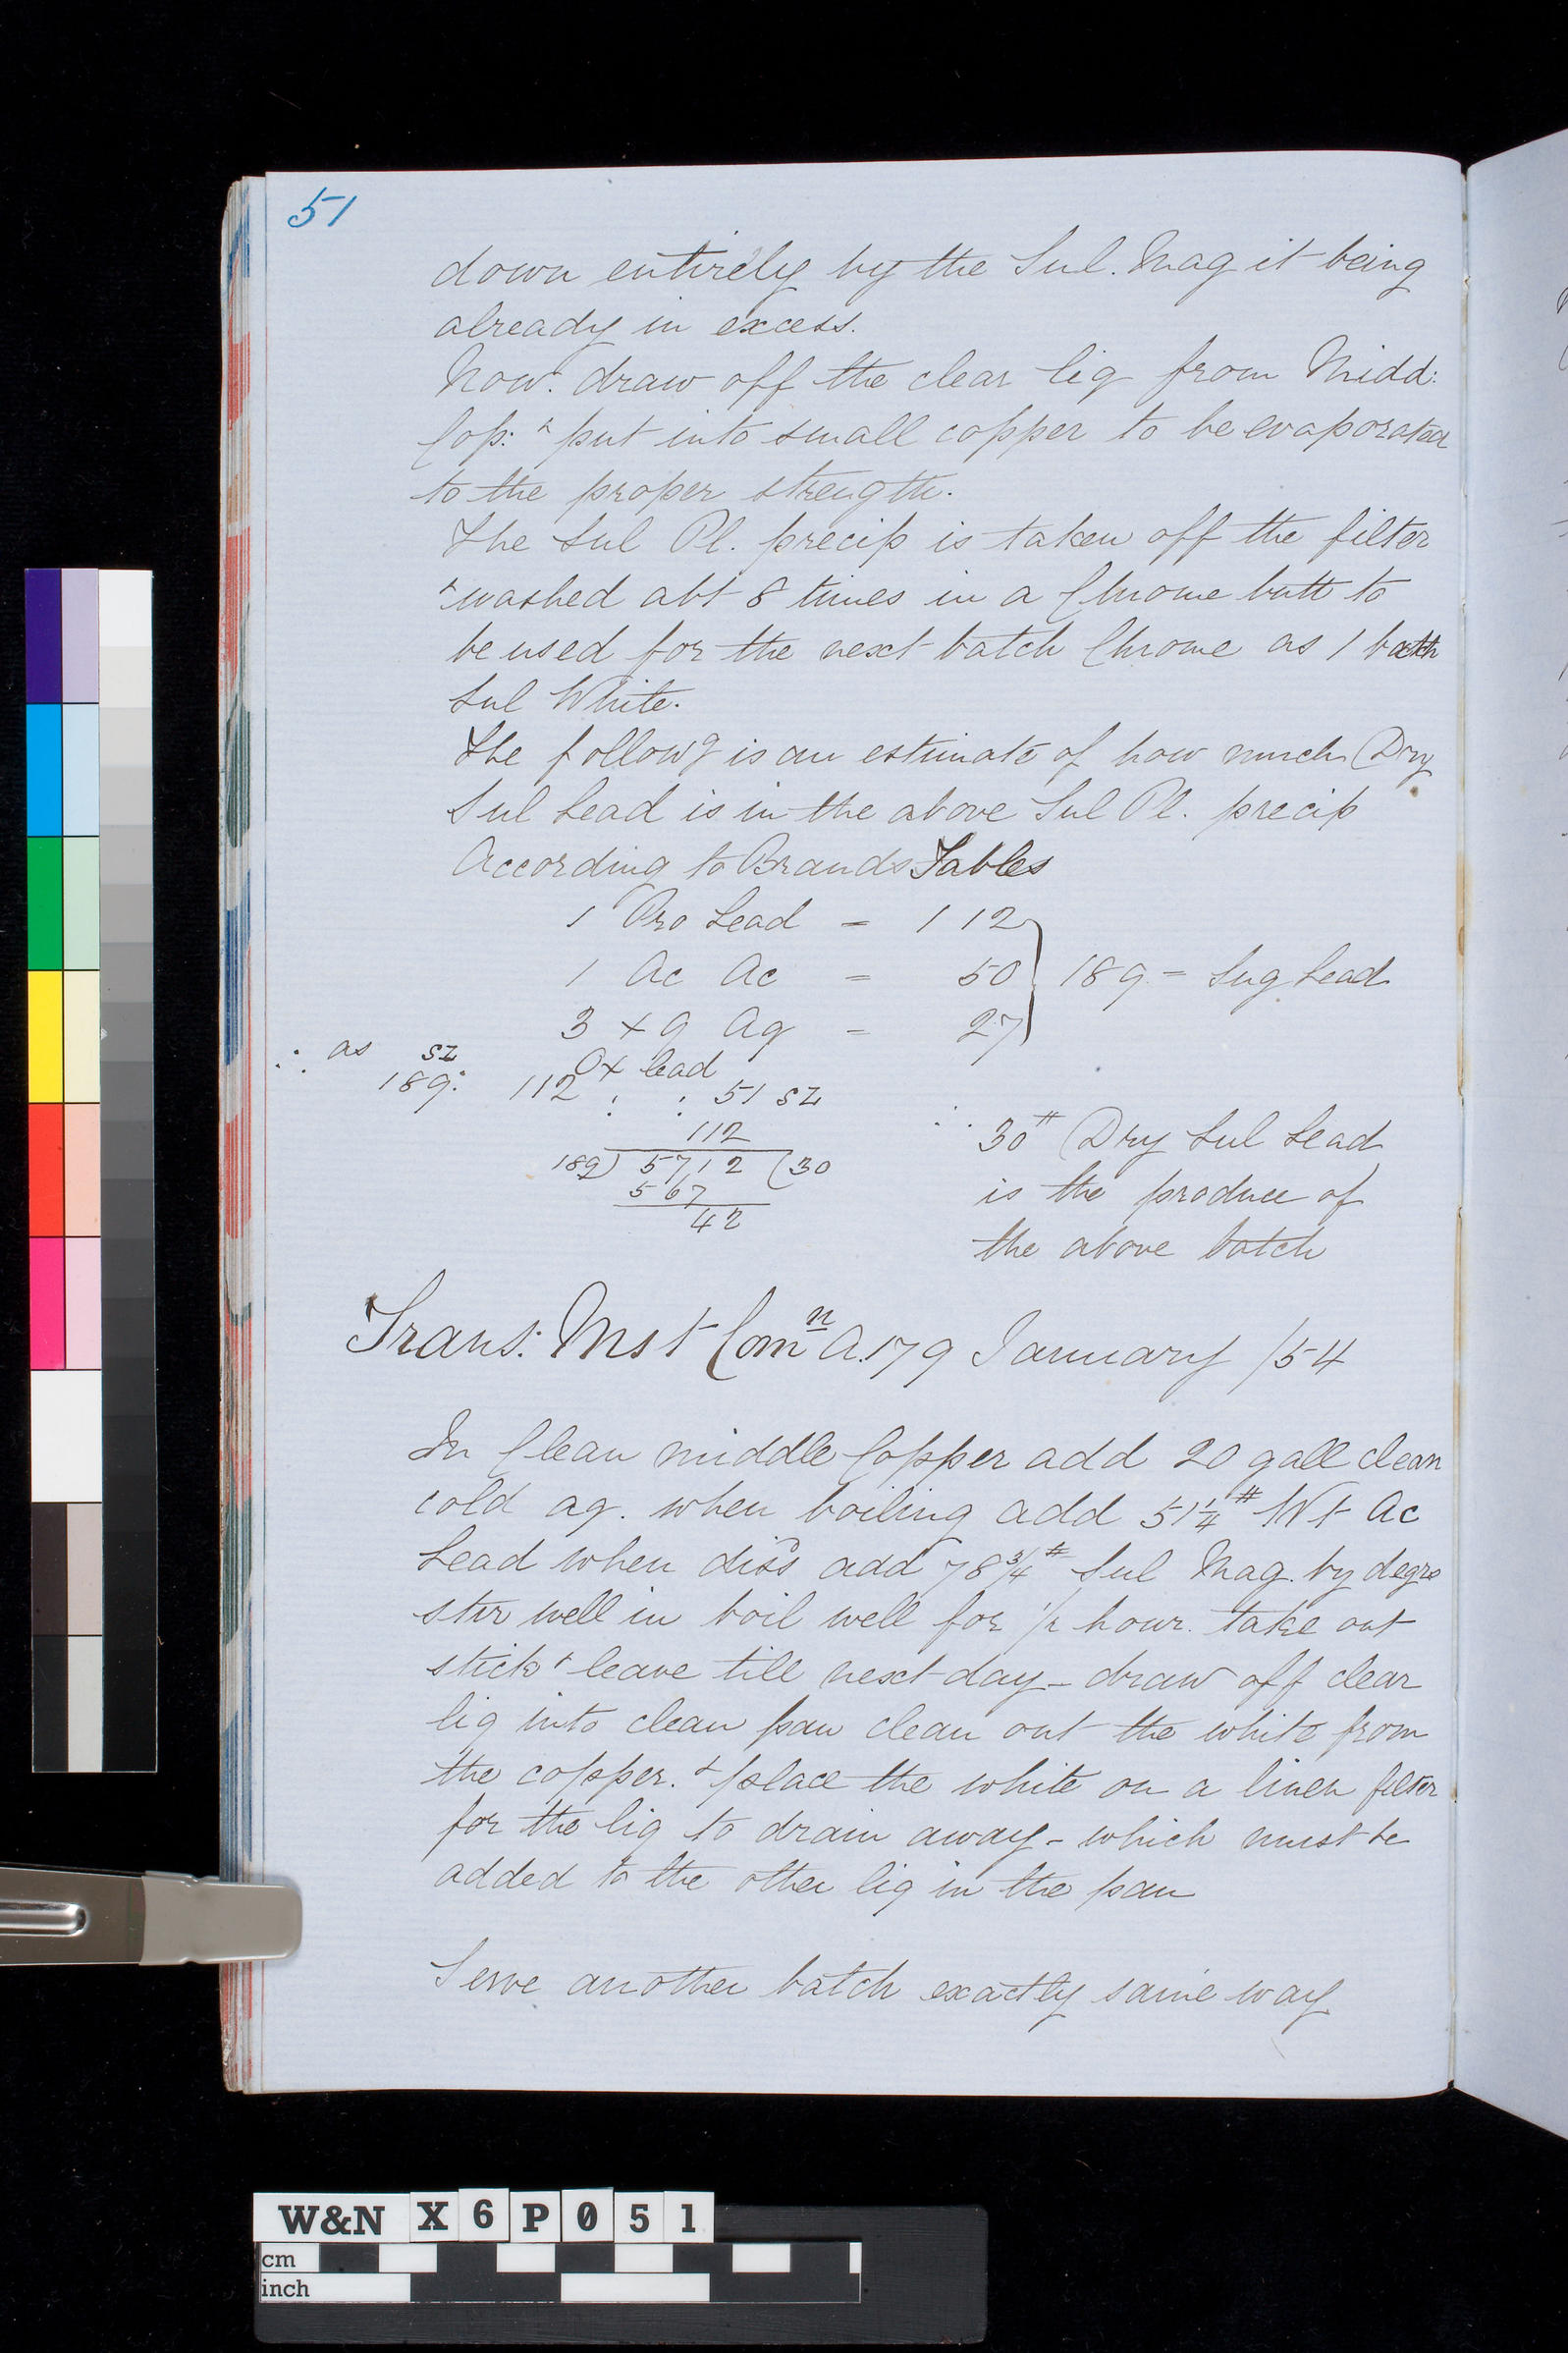 51
down entirely by the Sul. Mag it being
already in excess.
Now draw off the clear liq from Midd:
Cop: & put into small copper to be evaporated
to the proper strength.
The Sul Pl. precip is taken off the filter
& washed abt 8 times in a Chrome butt to
be used for the next batch Chrome as 1 batch
Sul White.
The followg is an estimate of how much Dry
Sul Lead is in the above Sul Pl. precip
According to Brands Tables
1 Pro Lead = 112
1 Ac Ac = 50 } 189 = Sug Lead
3 x 9 Aq = 27
∴ as SL Ox lead
189: 112 : : 51 SL
112
189) 5712 (30
567
42
∴ 30# Dry Sul Lead
is the produce of
the above batch
Trans: Mst Comn A.179 January /54
In Clean middle Copper add 20 gall clean
cold aq. when boiling add 51 1/4# Wt Ac
Lead when diss add 78 3/4# Sul Mag. by degre
stir well in boil well for 1/2 hour. take out
stick & leave till next day - draw off clear
liq into clean pan clean out the white from
the copper. & place the white on a linen filter
for the liq to drain away - which must be
added to the other liq in the pan
Serve another batch exactly same way
W&N X6P051
cm
inch